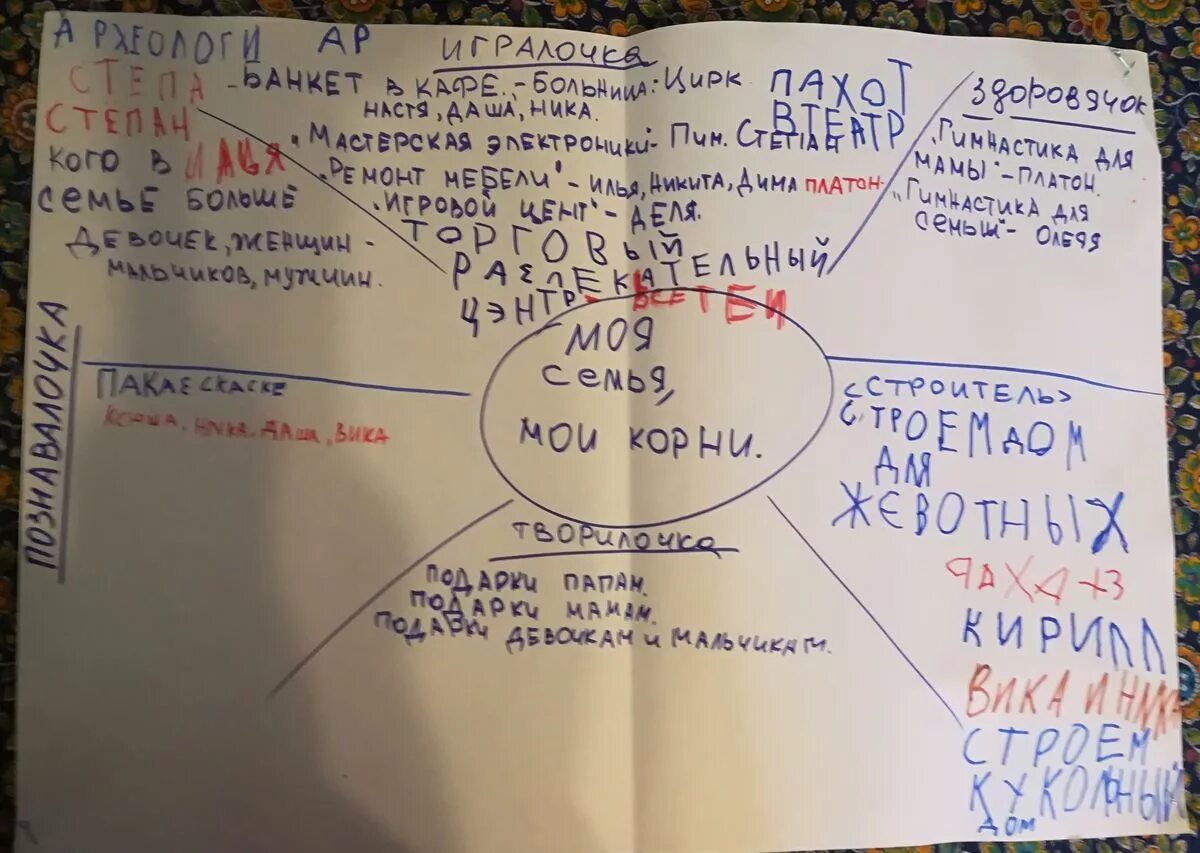 АРХЕОЛОГИ АР
СТЕПА
СТЕПАН
КОГО В
СЕМЬЕ БОЛЬШЕ
ДЕВОЧЕК, ЖЕНЩИН -
МАЛЬЧИКОВ, МУЖЧИН.
ИГРАЛОЧКА
- БАНКЕТ В КАФЕ. - БОЛЬНИЦА: ЦИРК
НАСТЯ, ДАША, НИКА.
ПАХОТ
ВТЕАТР
"МАСТЕРСКАЯ ЭЛЕКТРОНИКИ - ПИМ. СТЕПА
"РЕМОНТ МЕБЕЛИ" - ИЛЬЯ, НИКИТА, ДИМА ПЛАТОН
"ИГРОВОЙ ЦЕНТ" - ДЕЛЯ.
ТОРГОВЫЙ
РАЗЛЕКАТЕЛЬНЫЙ
ЦЭНТР - ВСЕТЕИ
ЗДОРОВЯЧОК
"ГИМНАСТИКА ДЛЯ
МАМЫ" - ПЛАТОН.
"ГИМНАСТИКА ДЛЯ
СЕМЬЫ" -
МОЯ
СЕМЬЯ,
МОИ КОРНИ.
ПОЗНАВАЛОЧКА
ПАКАЕСКАСКЕ
КСЮША, НИКА. ДАША, ВИКА
<СТРОИТЕЛЬ>
СТРОЕМ ДОМ
ДЛЯ
ЖЕВОТНЫХ
КИРИЛЛ
ВИКА И НИКА
СТРОЕМ
КУКОЛЬНЫЙ
ДОМ
ТВОРИЛОЧКА
ПОДАРКИ ПАПАМ.
ПОДАРКИ МАМАМ.
ПОДАРКИ ДЕВОЧКАМ И МАЛЬЧИКАМ.